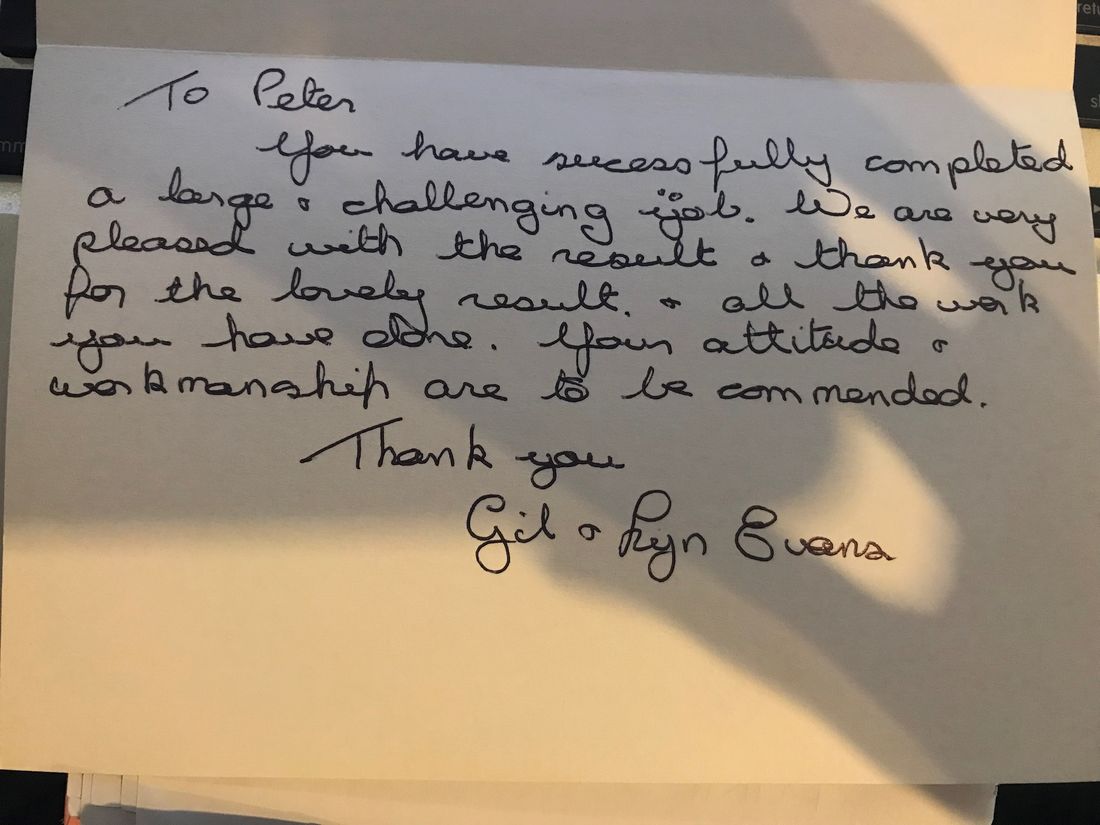 To Peter
You have sucessfully completed
a large & challenging job. We are very
pleased with the result & thank you
for the lovely result. & all the work
you have done. Your attitude &
workmanship are to be commended.
Thank you
Gil & Lyn Evans